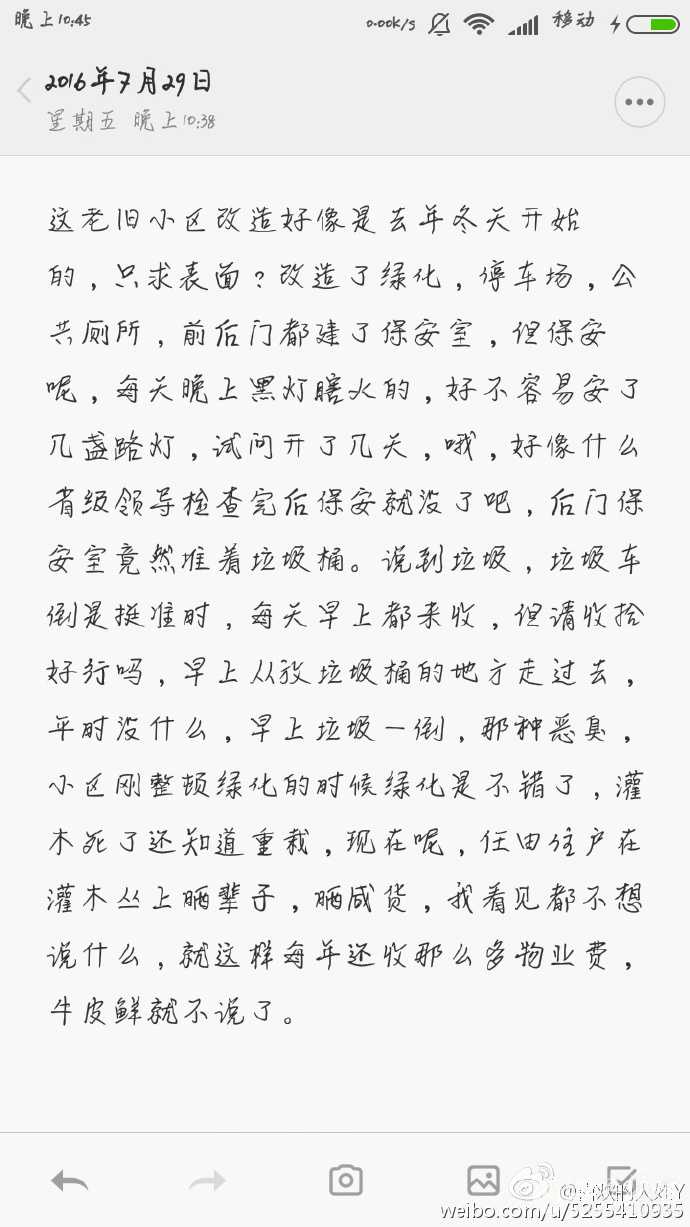 晚上10:45 0.00K/s 移动
2016年7月29日
星期五 晚上10:38
这老旧小区改造好像是去年冬天开始
的，只求表面？改造了绿化，停车场，公
共厕所，前后门都建了保安室，但保安
呢，每天晚上黑灯瞎火的，好不容易安了
几盏路灯，试问开了几天，哦，好像什么
省级领导检查完后保安就没了吧，后门保
安室竟然堆着垃圾桶。说到垃圾，垃圾车
倒是挺准时，每天早上都来收，但请收拾
好行吗，早上从放垃圾桶的地方走过去，
平时没什么，早上垃圾一倒，那种恶臭，
小区刚整顿绿化的时候绿化是不错了，灌
木死了还知道重栽，现在呢，任由住户在
灌木丛上晒辈子，晒咸货，我看见都不想
说什么，就这样每年还收那么多物业费，
牛皮鲜就不说了。
weibo.com/u/5255410935